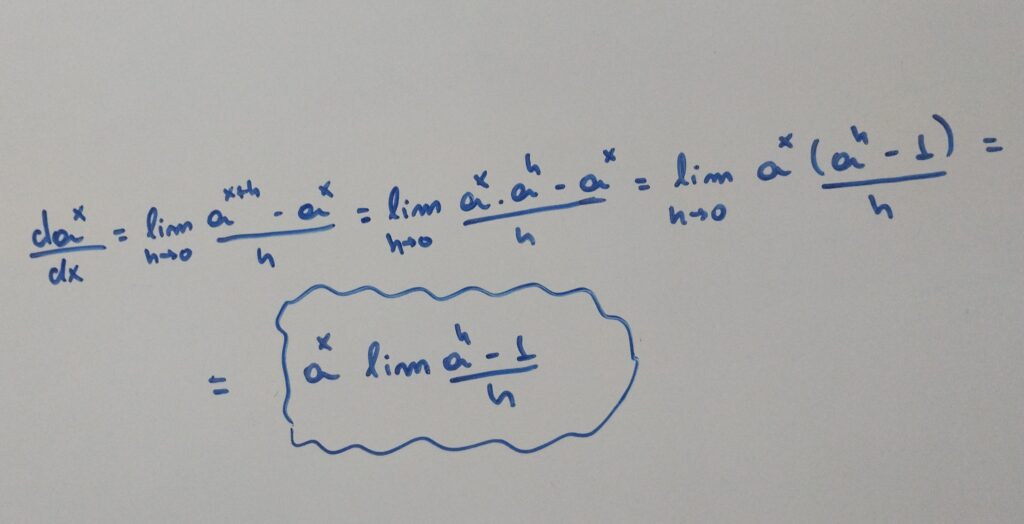 da^x/dx = lim h→0 (a^(x+h) - a^x)/h = lim h→0 (a^x · a^h - a^x)/h = lim h→0 a^x (a^h - 1)/h =
= a^x lim (a^h - 1)/h